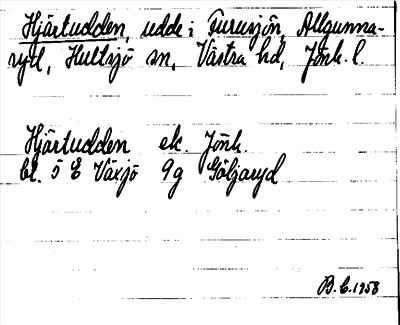 Hjärtudden, udde i Furusjön, Allgunna-
ryd, Hultsjö sn, Västra hd, Jönk. l.
Hjärtudden ek. Jönk.
bl. 5 E Växjö 9g Göljaryd
B.E.1958